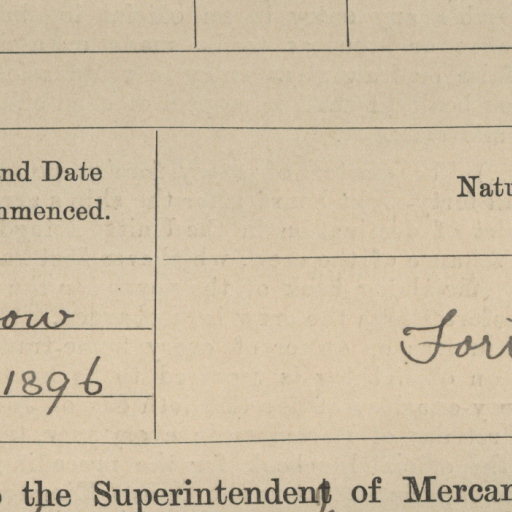 nd Date
nmenced.
Natu
ow
1896
Fori
the Superintendent of Mercan